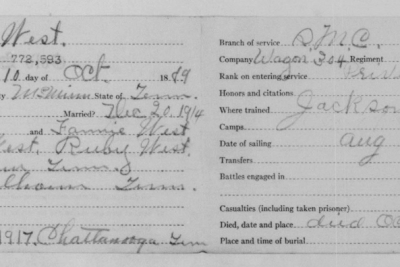 West.
772,593
10 day of Oct. 1889
McMinn State of Tenn.
Married? Dec 20 1914
and Fannie West
Ruby West.
Tenn.
1917, Chattanooga Tenn
Branch of service Q.M.C.
Company Wagon 304 Regiment
Rank on entering service
Honors and citations
Where trained Jackson
Camps
Date of sailing Aug
Transfers
Battles engaged in
Casualties (including taken prisoner)
Died, date and place died Oc
Place and time of burial